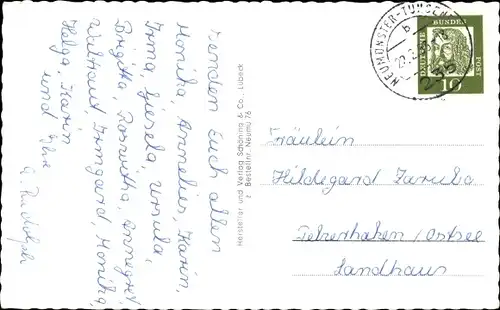 senden Euch allen
Monika, Annelies, Karin,
Irma, Gisela, Ursula,
Brigitta, Roswitha, Annegret,
Waltraut, Irmgard, Monika,
Helga, Karin
und Ihre
G. Rudolph
Hersteller und Verlag Schöning & Co., Lübeck
Bestellnr. Neumü 76
NEUMÜNSTER-TUNGEN
b
DEUTSCHE
BUNDES
POST
10
Fräulein
Hildegard Zaruba
Pelzerhaken/Ostsee
Landhaus